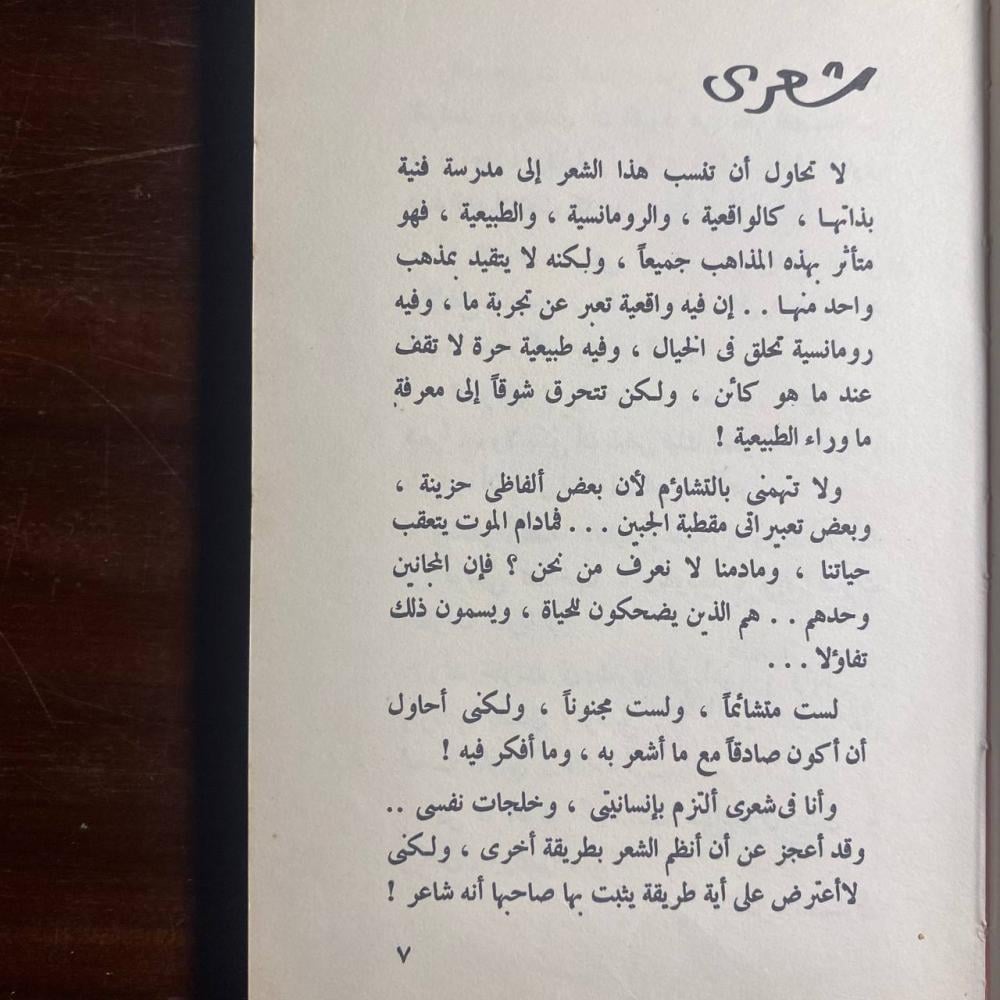 شعرى
لا تحاول أن تنسب هذا الشعر إلى مدرسة فنية
بذاتها ، كالواقعية ، والرومانسية ، والطبيعية ، فهو
متأثر بهذه المذاهب جميعاً ، ولكنه لا يتقيد بمذهب
واحد منها . . إن فيه واقعية تعبر عن تجربة ما ، وفيه
رومانسية تحلق فى الخيال ، وفيه طبيعية حرة لا تقف
عند ما هو كائن ، ولكن تتحرق شوقاً إلى معرفة
ما وراء الطبيعية !
ولا تتهمنى بالتشاؤم لأن بعض ألفاظى حزينة ،
وبعض تعبيراتى مقطبة الجبين . . . فمادام الموت يتعقب
حياتنا ، ومادمنا لا نعرف من نحن ؟ فإن المجانين
وحدهم . . هم الذين يضحكون للحياة ، ويسمون ذلك
تفاؤلا . . .
لست متشائماً ، ولست مجنوناً ، ولكنى أحاول
أن أكون صادقاً مع ما أشعر به ، وما أفكر فيه !
وأنا فى شعرى ألتزم بإنسانيتى ، وخلجات نفسى . .
وقد أعجز عن أن أنظم الشعر بطريقة أخرى ، ولكنى
لا أعترض على أية طريقة يثبت بها صاحبها أنه شاعر !
٧